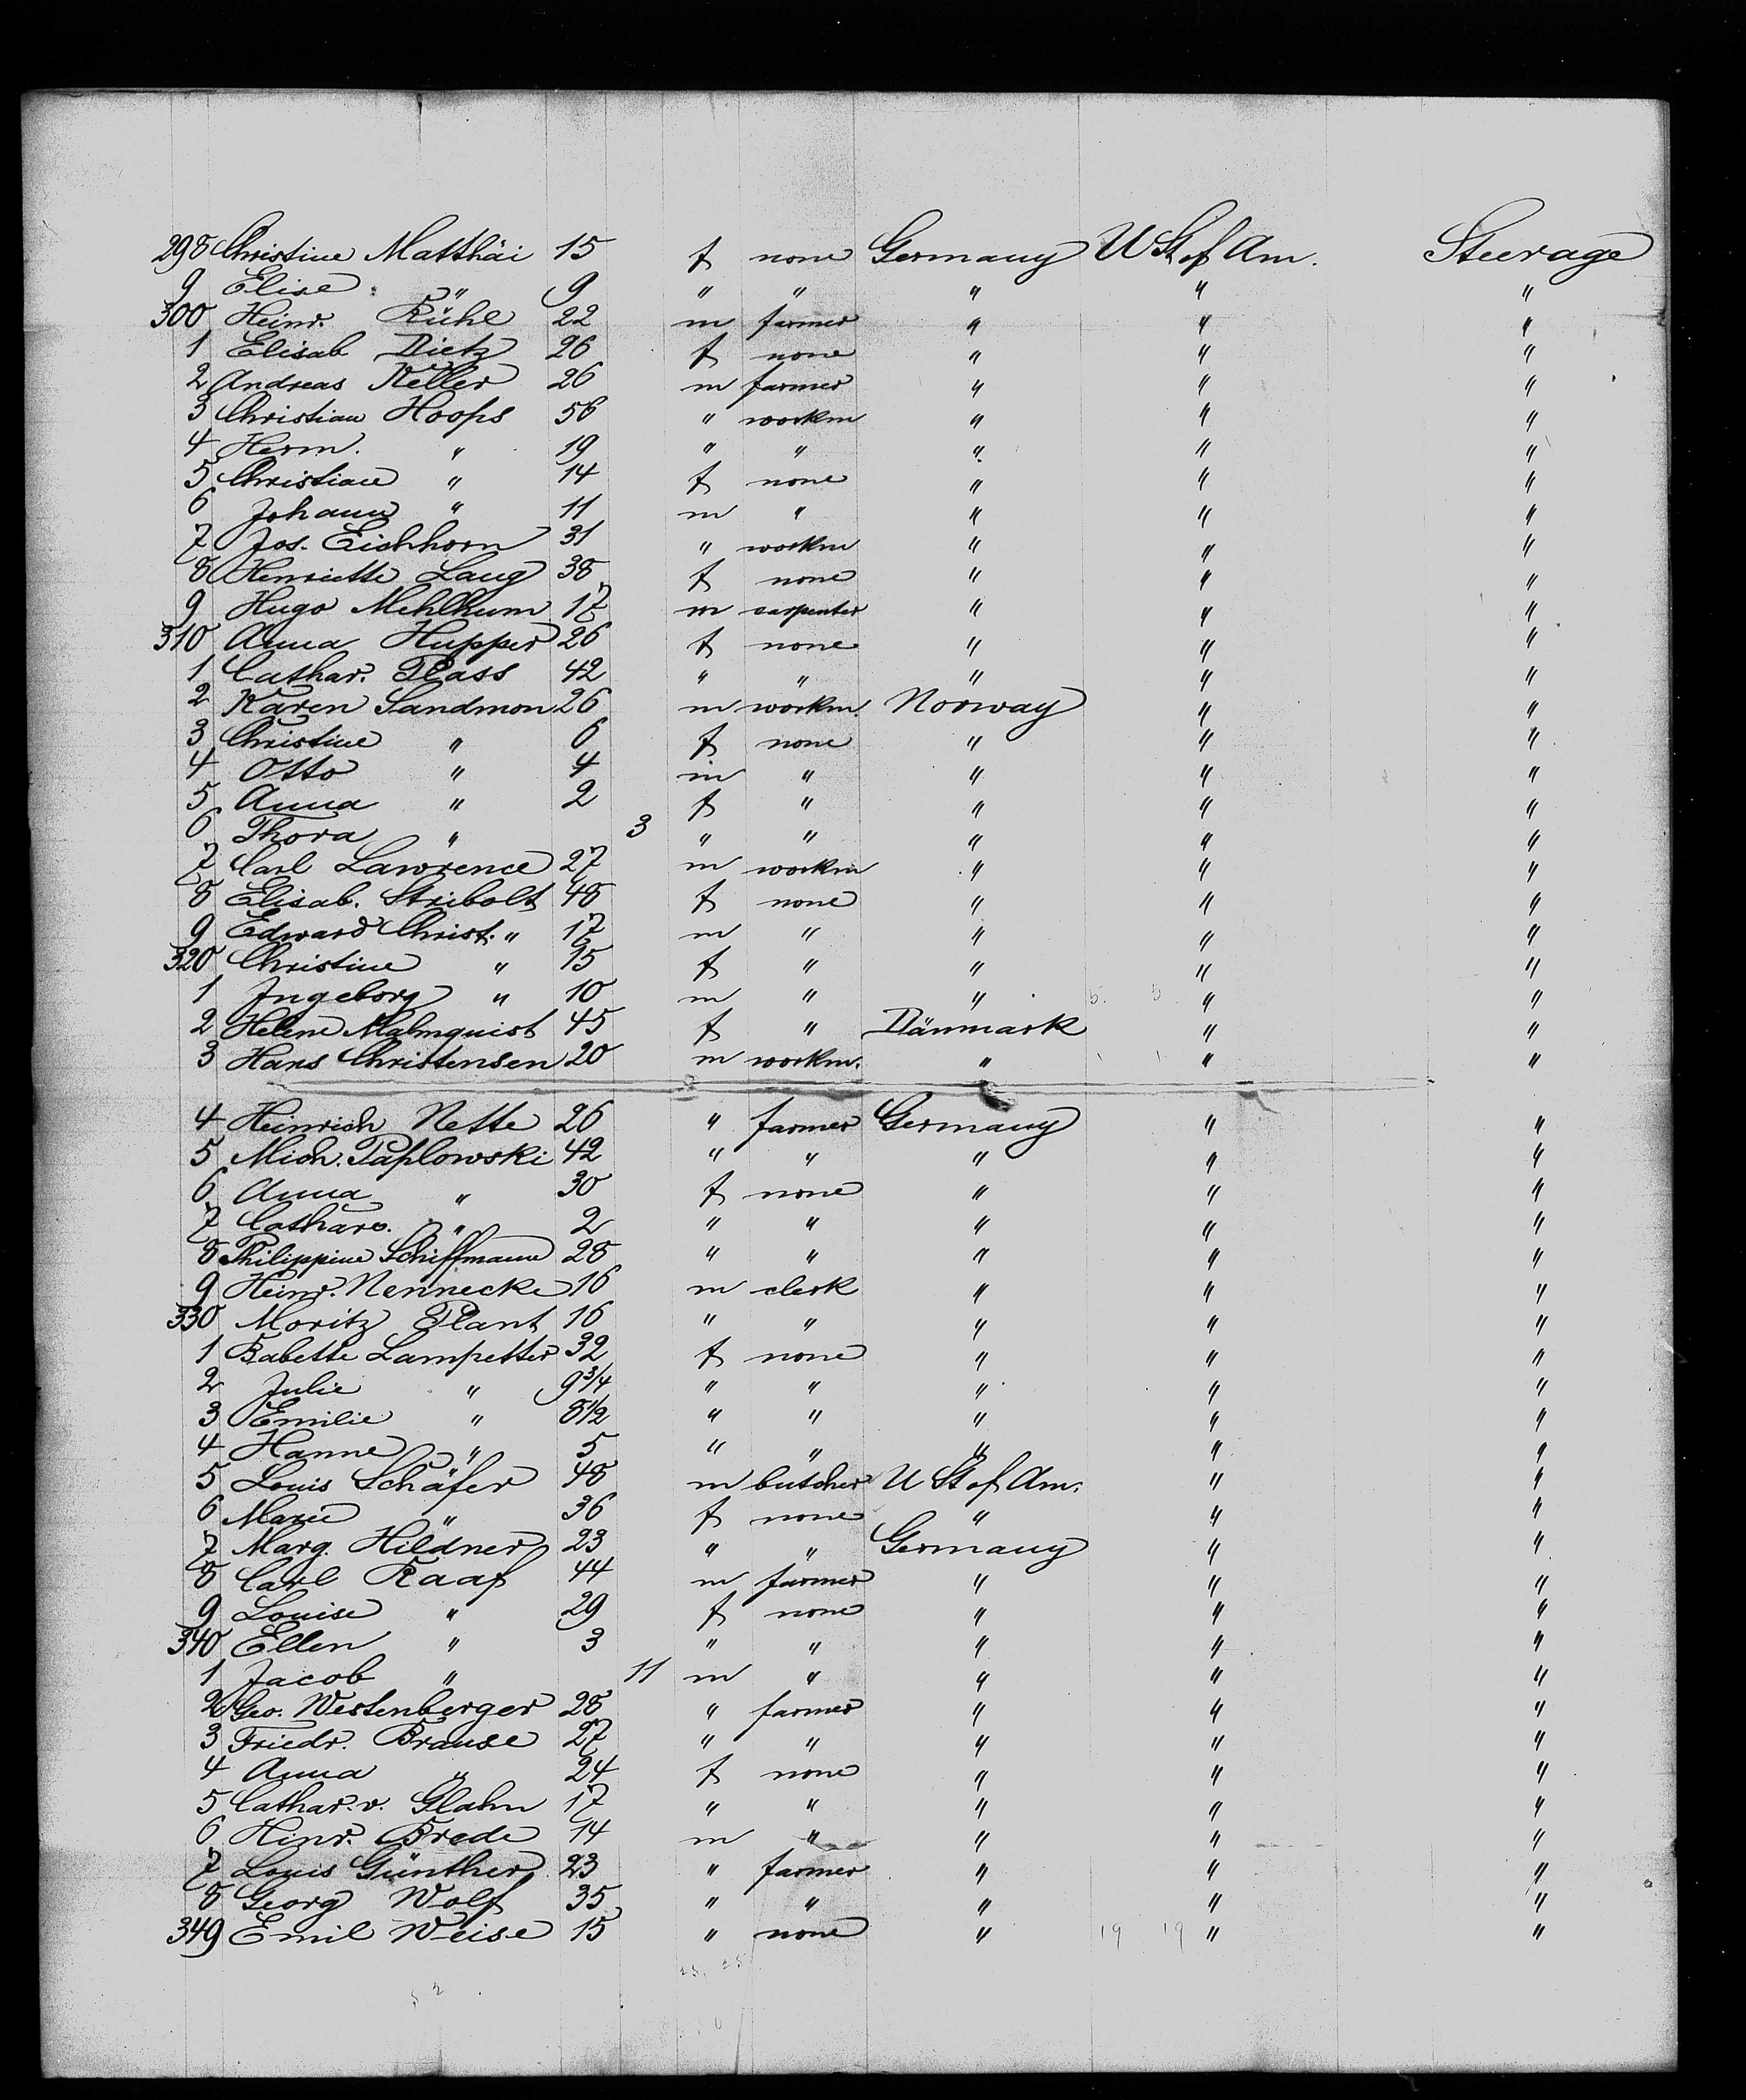 298 Christine Matthäi 15 f none Germany U St of Am. Steerage
9 Elise " 9 " " " " "
300 Heinr. Rühl 22 m farmer " " "
1 Elisab Dietz 26 f none " " "
2 Andreas Keller 26 m farmer " " "
3 Christian Hoops 56 " workm " " "
4 Herm. " 19 " " " " "
5 Christiane " 14 f none " " "
6 Johann " 11 m " " " "
7 Jos. Eichhorn 31 " workm " " "
8 Henriette Lang 38 f none " " "
9 Hugo Mehlhum 17 m carpenter " " "
310 Anna Hupper 26 f none " " "
1 Cathar. Plass 42 " " " " "
2 Karen Sandmon 26 m workm. Norway " "
3 Christine " 6 f none " " "
4 Otto " 4 m " " " "
5 Anna " 2 f " " " "
6 Thora " 3 " " " " "
7 Carl Lawrence 27 m workm " " "
8 Elisab. Stribolt 48 f none " " "
9 Edward Christ. " 17 m " " " "
320 Christine " 15 f " " " "
1 Ingeborg " 10 m " " 5. 5 " "
2 Helene Malmquist 45 f " Dänmark " "
3 Hans Christensen 20 m workm. " " "
4 Heinrich Nette 26 " farmer Germany " "
5 Mich. Paplowski 42 " " " " "
6 Anna " 30 f none " " "
7 Cathar. " 2 " " " " "
8 Philippine Schiffmann 28 " " " " "
9 Heinr. Nennecke 16 m clerk " " "
330 Moritz Plant 16 " " " " "
1 Babette Lampetter 32 f none " " "
2 Julie " 9 3/4 " " " " "
3 Emilie " 8 1/2 " " " " "
4 Hanne " 5 " " " " "
5 Louis Schäfer 48 m butcher U St of Am. " "
6 Marie " 36 f none " " "
7 Marg. Hildner 23 " " Germany " "
8 Carl Raaf 44 m farmer " " "
9 Louise " 29 f none " " "
340 Ellen " 3 " " " " "
1 Jacob " 11 m " " " "
2 Geo. Westenberger 28 " farmer " " "
3 Friedr. Brause 27 " " " " "
4 Anna " 24 f none " " "
5 Cathar. v. Glahn 17 " " " " "
6 Hinr. Brede 14 m " " " "
7 Louis Günther 23 " farmer " " "
8 Georg Wolf 35 " " " " "
349 Emil Weise 15 " none " 19 19 " "